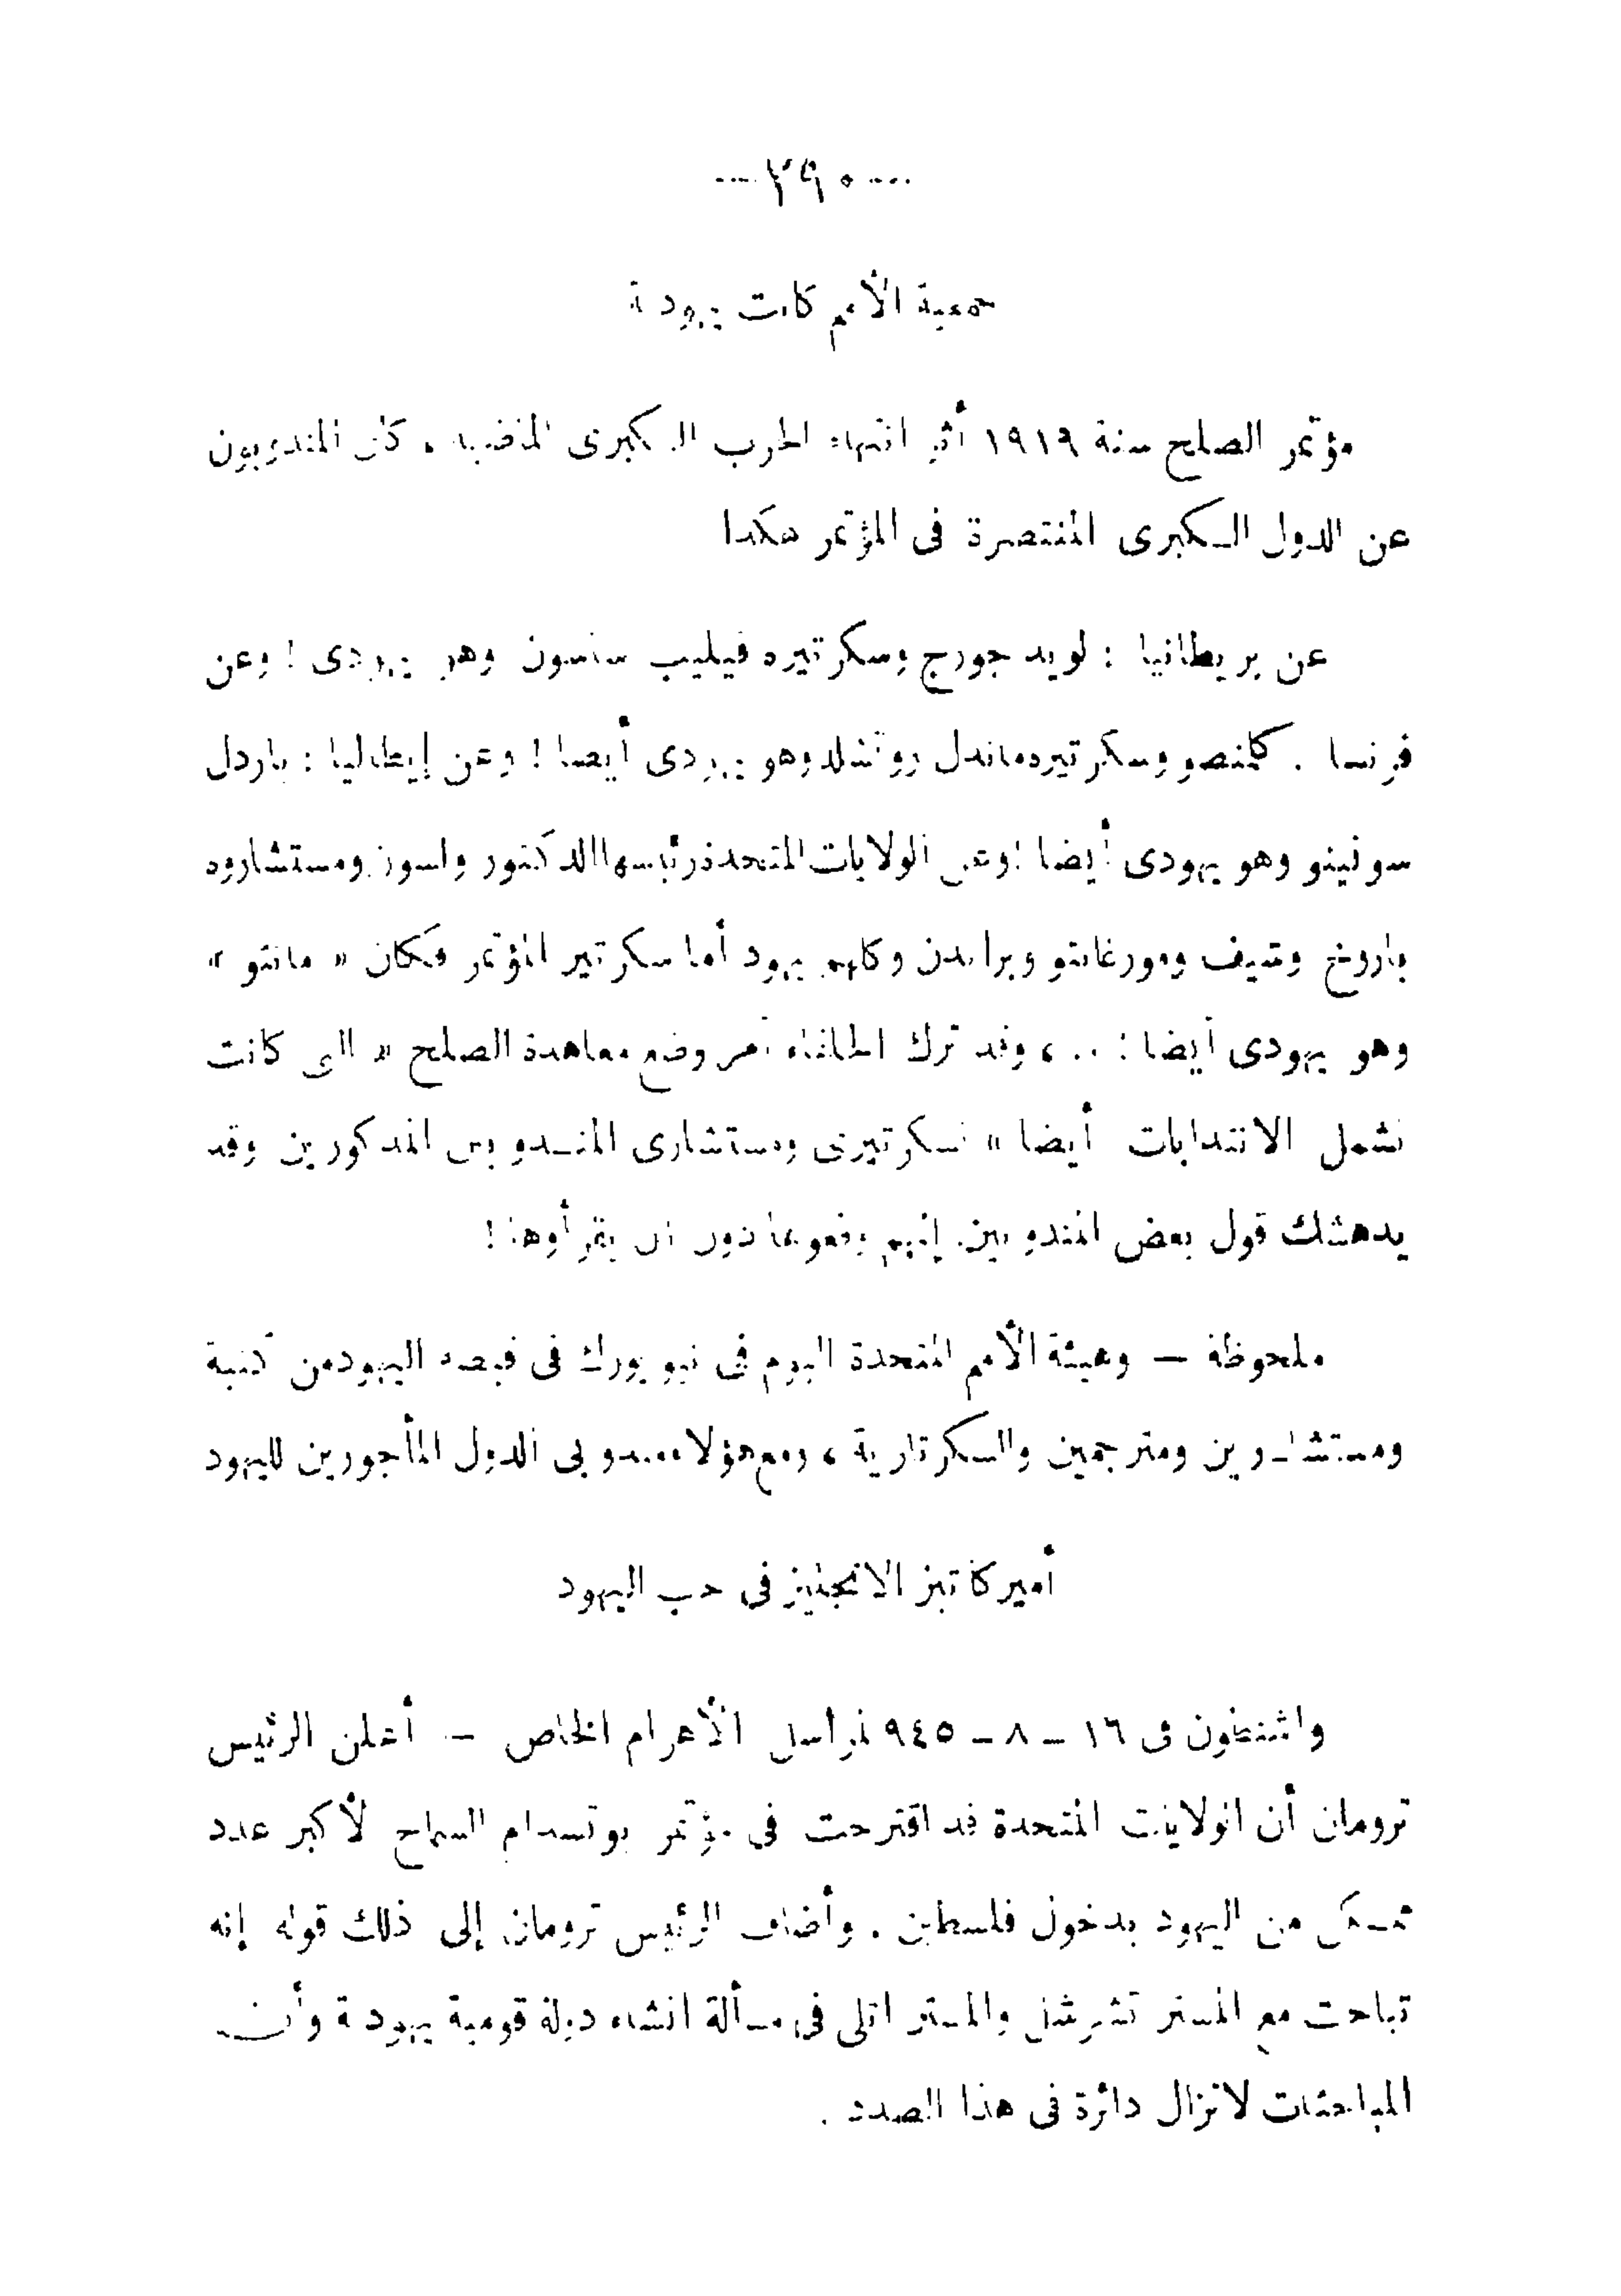 — ٢٩٠ —
جمعية الأمم كانت يهودية
مؤتمر الصلح سنة ١٩١٩ أثر انتهاء الحرب الكبرى الماضية ، كان المندوبون
عن الدول الكبرى المنتصرة فى المؤتمر هكذا
عن بريطانيا : لويد جورج وسكرتيره فيليب ساسون وهو يهودى ! وعن
فرنسا : كلمنصو وسكرتيره ماندل روتشلد وهو يهودى أيضا ! وعن إيطاليا : بارون
سونينو وهو يهودى أيضا ! وعن الولايات المتحدة رئيسها الدكتور ولسون ومستشاروه
باروخ وشيف ومورغانتو وبراندن وكلهم يهود أما سكرتير المؤتمر فكان « مانتو »
وهو يهودى أيضا ! .. ، وقد ترك الحلفاء أمر وضع معاهدة الصلح « التى كانت
تشمل الانتدابات أيضا » لسكرتيرى ومستشارى المندوبين المذكورين وقد
يدهشك قول بعض المندوبين إنهم وقعوها دون أن يقرأوها !
ملحوظة — وهيئة الأمم المتحدة اليوم فى نيويورك فى قبضة اليهود من كتبة
ومستشارين ومترجمين والسكرتارية ، ومع هؤلاء مندوبى الدول المأجورين لليهود
أميركا تبز الانجليز فى حب اليهود
واشنطون فى ١٦ – ٨ – ٩٤٥ لمراسل الأهرام الخاص – أعلن الرئيس
ترومان أن الولايات المتحدة قد اقترحت فى مؤتمر بوتسدام السماح لأكبر عدد
ممكن من اليهود بدخول فلسطين . وأضاف الرئيس ترومان إلى ذلك قوله إنه
تباحث مع المستر تشرشل والمستر اتلى فى مسألة انشاء دولة قومية يهودية وأن
المباحثات لاتزال دائرة فى هذا الصدد .